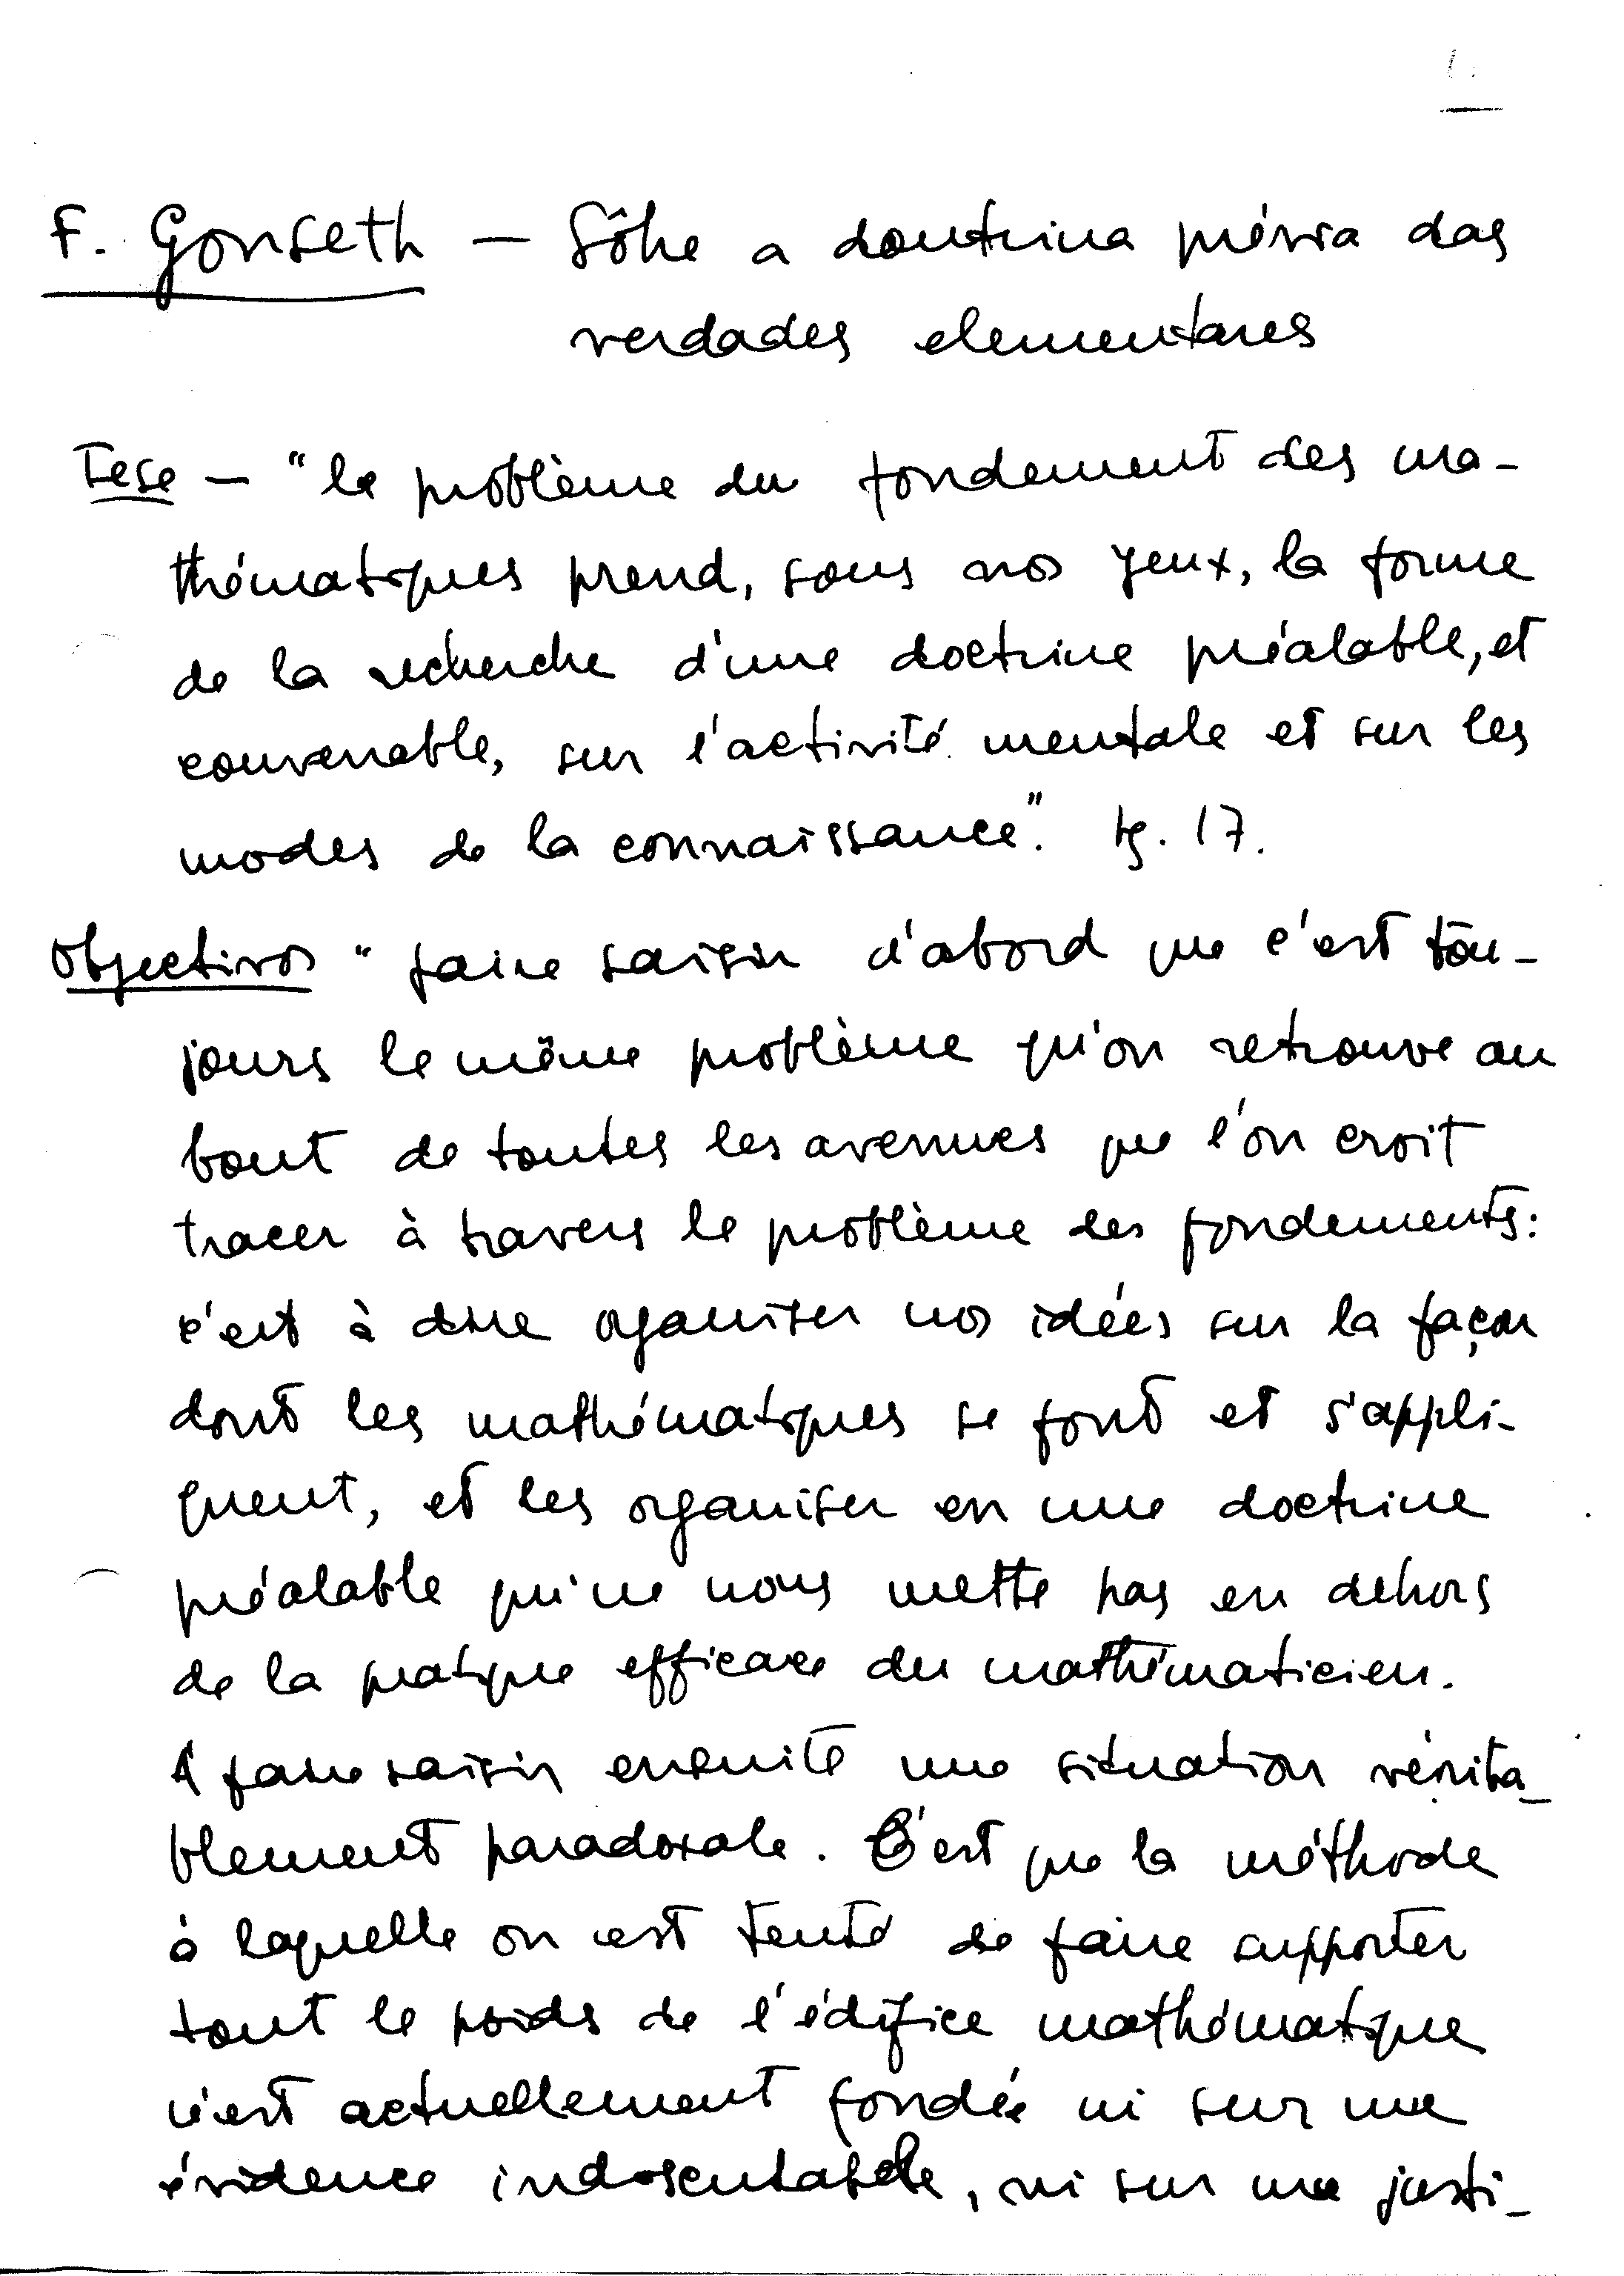 1.
F. Gonseth — Sôbre a doutrina prévia das
verdades elementares
Tese — "le problème du fondement des ma-
thématiques prend, sous nos yeux, la forme
de la recherche d'une doctrine préalable, et
convenable, sur l'activité mentale et sur les
modes de la connaissance". Pg. 17.
Objectivos "faire saisir d'abord que c'est tou-
jours le même problème qu'on retrouve au
bout de toutes les avenues que l'on croit
tracer à travers le problème des fondements:
c'est à dire organiser nos idées sur la façon
dont les mathématiques se font et s'appli-
quent, et les organiser en une doctrine
préalable qui ne nous mette pas en dehors
de la pratique efficace du mathématicien.
A faire saisir ensuite une situation vérita-
blement paradoxale. C'est que la méthode
à laquelle on est tenté de faire supporter
tout le poids de l'édifice mathématique
n'est actuellement fondée ni sur une
évidence indiscutable, ni sur une justi-